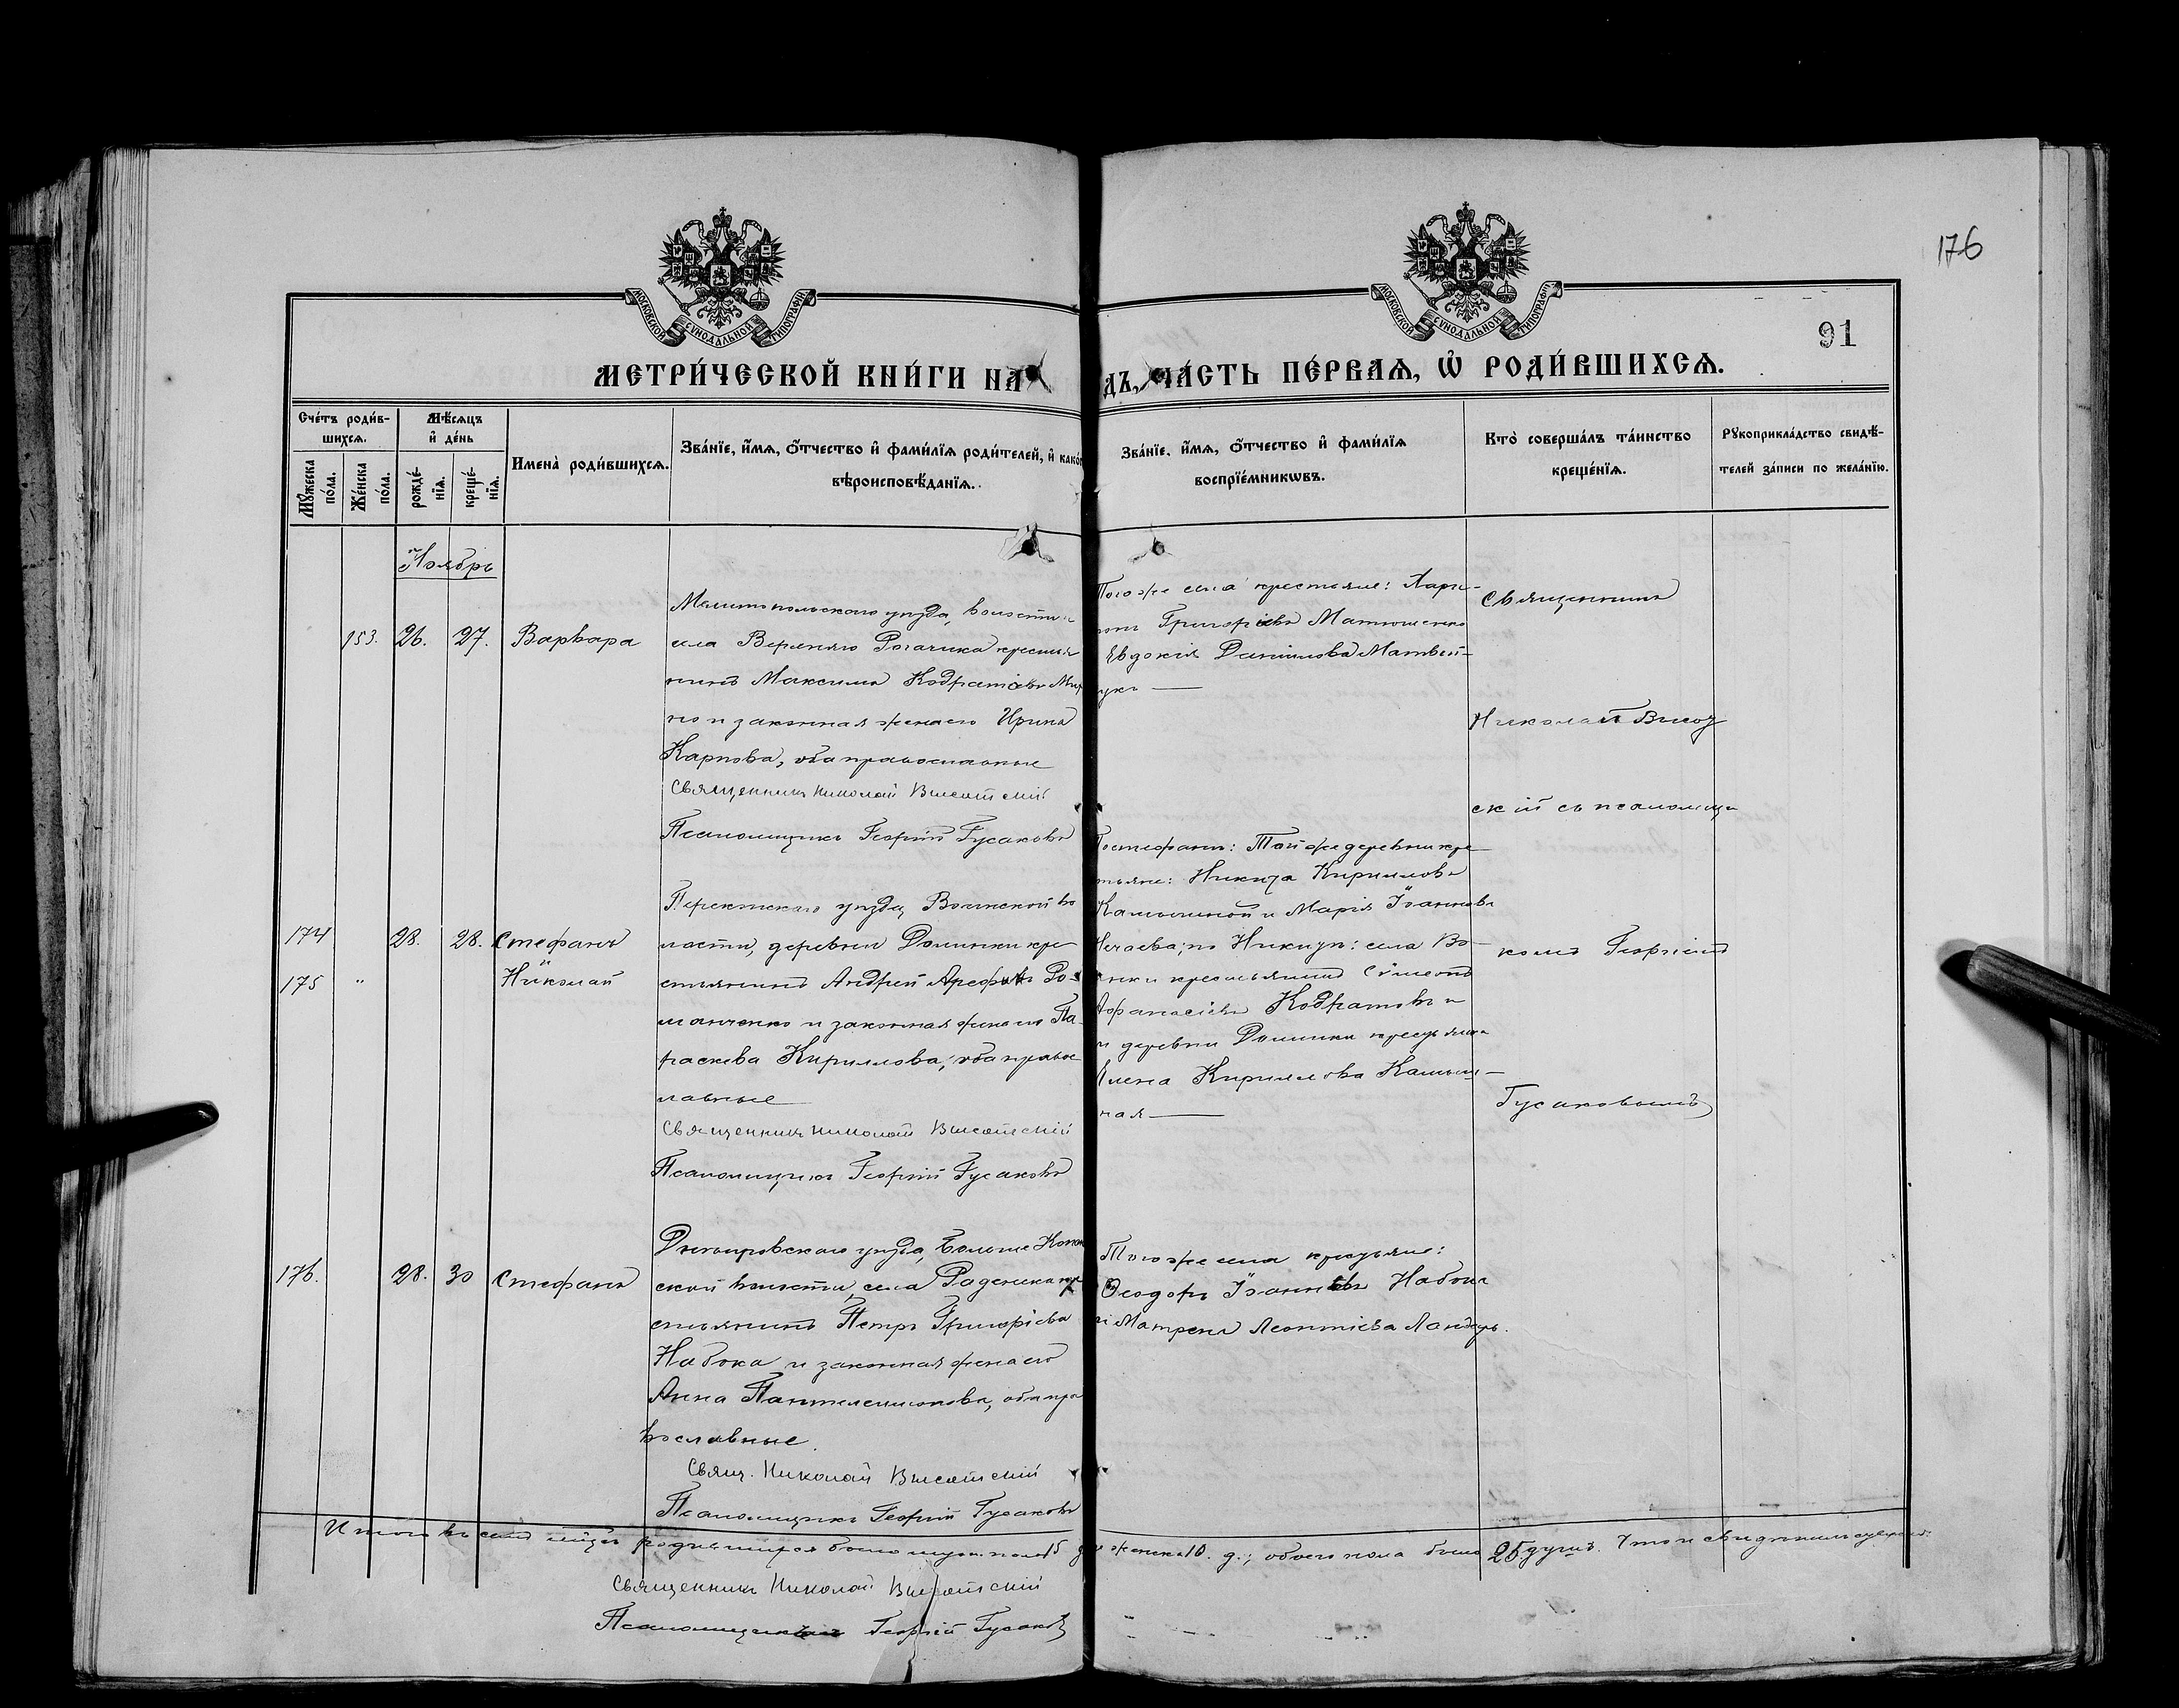 176
91
МОСКОВСКОЙ СѴНОДАЛЬНОЙ ТИПОГРАФІИ
МОСКОВСКОЙ СѴНОДАЛЬНОЙ ТИПОГРАФІИ
МЕТРИ́ЧЕСКОЙ КНИ́ГИ НА
ДЪ, ЧА́СТЬ ПЕ́РВАѦ, Ѿ РОДИ́ВШИХСѦ.
Сче́тъ роди́в-
шихсѧ.
Мꙋ́жеска по́ла.
Же́нска по́ла.
Мѣ́сѧцъ
и҆ де́нь
рожде́-
нїѧ.
креще́-
нїѧ.
Имена̀ роди́вшихсѧ.
Зва́нїе, и҆́мѧ, ѻ҆́тчество и҆ фами́лїѧ роди́телей, и҆ како́г
вѣроисповѣ́данїѧ.
Зва́нїе, и҆́мѧ, ѻ҆́тчество и҆ фами́лїѧ
воспрїе́мникѡвъ.
Кто̀ соверша́лъ та́инство
креще́нїѧ.
Рꙋкоприкла́дство свидѣ́-
телей за́писи по жела́нїю.
Ноябрь
153. 26. 27. Варвара
Мелитопольскаго уѣзда, волости и
села Верхняго Рогачика крестья
нинъ Максимъ Кодратіевъ
но и законная жена его Ирина
Карпова, оба православные
Священникъ Николай Высотскій
Псаломщикъ Георгій Гусаковъ
Того же села крестьяне: Хари-
тонъ Григоріевъ Матюшенко
Евдокія Даніилова Матвей-
укъ
174 28. 28. Стефанъ
175 " Николай
Перекопскаго уѣзда, Воинской во
лости, деревни Долинки кре
стьянинъ Андрей Арефіевъ Ро-
манченко и законная жена его Па-
раскева Кириллова, оба правос
лавные
Священникъ Николай Высотскій
Псаломщикъ Георгій Гусаковъ
По Стефану: Той же деревни кре
стьяне: Никита Кирилловъ
и Марія Іоаннова
Нечаева; по Никол: села Во-
инки крестьянинъ Сѵмеонъ
Афанасіевъ Кодратовъ и
и деревни Долинки крестьянка
Елена Кириллова
ная
176. 28. 30 Стефанъ
Днѣпровскаго уѣзда, Больше Копан
ской волости, села Раденска кре
стьянинъ Петръ Григоріевъ
Набока и законная жена его
Анна Пантелеимонова, оба пра
вославные.
Свящ. Николай Высотскій
Псаломщикъ Георгій Гусаковъ
Того же села крестьяне:
Ѳеодоръ Іоанновъ Набока
и Матрена Леонтіева Ландарь.
Священникъ
Николай Высот
скій съ псаломщи
комъ Георгіемъ
Гусаковымъ
Итого въ семъ мѣсяцѣ родившихся было муж. пола 15 д. женска 10. д.; обоего пола было 25 душъ. Что и свидѣтельствуемъ:
Священникъ Николай Высотскій
Псаломщикъ Георгій Гусаковъ